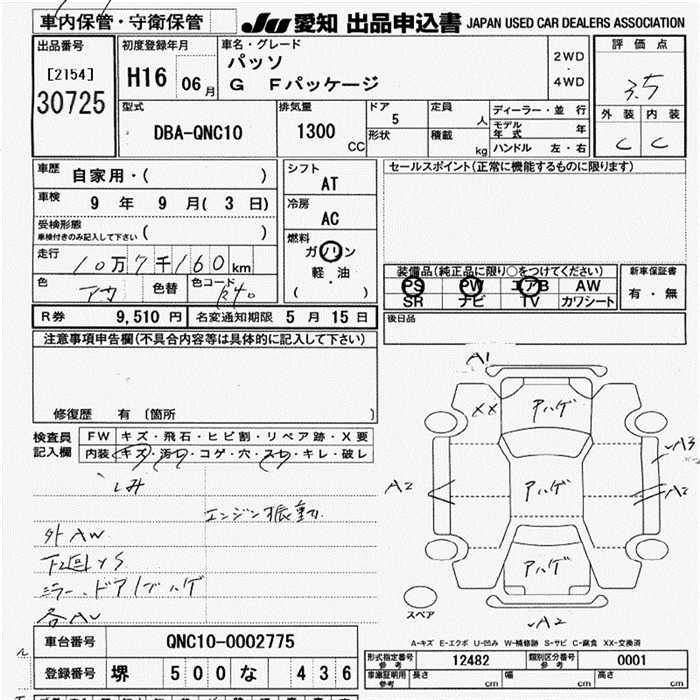 車内保管・守衛保管
JU 愛知 出品申込書 JAPAN USED CAR DEALERS ASSOCIATION
出品番号
[2154]
30725
初度登録年月
H16 06月
車名・グレード
パッソ
G Fパッケージ
2WD
・
4WD
評価点
3.5
外装 内装
C C
型式
DBA-QNC10
排気量
1300 CC
ドア
5
形状
定員 人
積載 kg
ディーラー・並行
モデル年式 年
ハンドル 左・右
車歴
自家用・( )
車検
9年 9月( 3日)
受検形態
車検付きのみ記入して下さい ( )
走行
10万7千160km
色 色替 色コード
R40
シフト
AT
冷房
AC
燃料
ガソリン
軽・油
( )
セールスポイント(正常に機能するものに限ります)
装備品(純正品に限り○をつけてください)
PS PW エアB AW
SR ナビ TV カワシート
新車保証書
有・無
後日品
R券 9,510円 名変通知期限 5月 15日
注意事項申告欄(不具合内容等は具体的に記入して下さい)
修復歴 有 〔箇所 〕
検査員記入欄
FW キズ・飛石・ヒビ割・リペア跡・X要
内装 キズ・汚レ・コゲ・穴・スレ・キレ・破レ
シミ
エンジン振動
外AW
下回りS
ミラー、ドアノブハゲ
各AU
A1
XX
アハゲ
A3
A2
アハゲ
A2
アハゲ
A2
スペア
A-キズ E-エクボ U-凹み W-補修跡 S-サビ C-腐食 XX-交換済
車台番号 QNC10-0002775
登録番号 堺 500 な 436
形式指定番号 参考 12482 類別区分番号 参考 0001
車庫証明用 参考 長さ cm 幅 cm 高さ cm